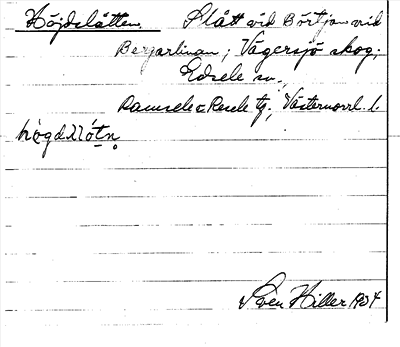 Höjdslåtten. Slått vid Börtjärn vid
Bergarlinan; Vägersjö skog;
Edsele sn.,
Ramsele o Resele tg, Västernorrl. l.
Sven Hiller 1934